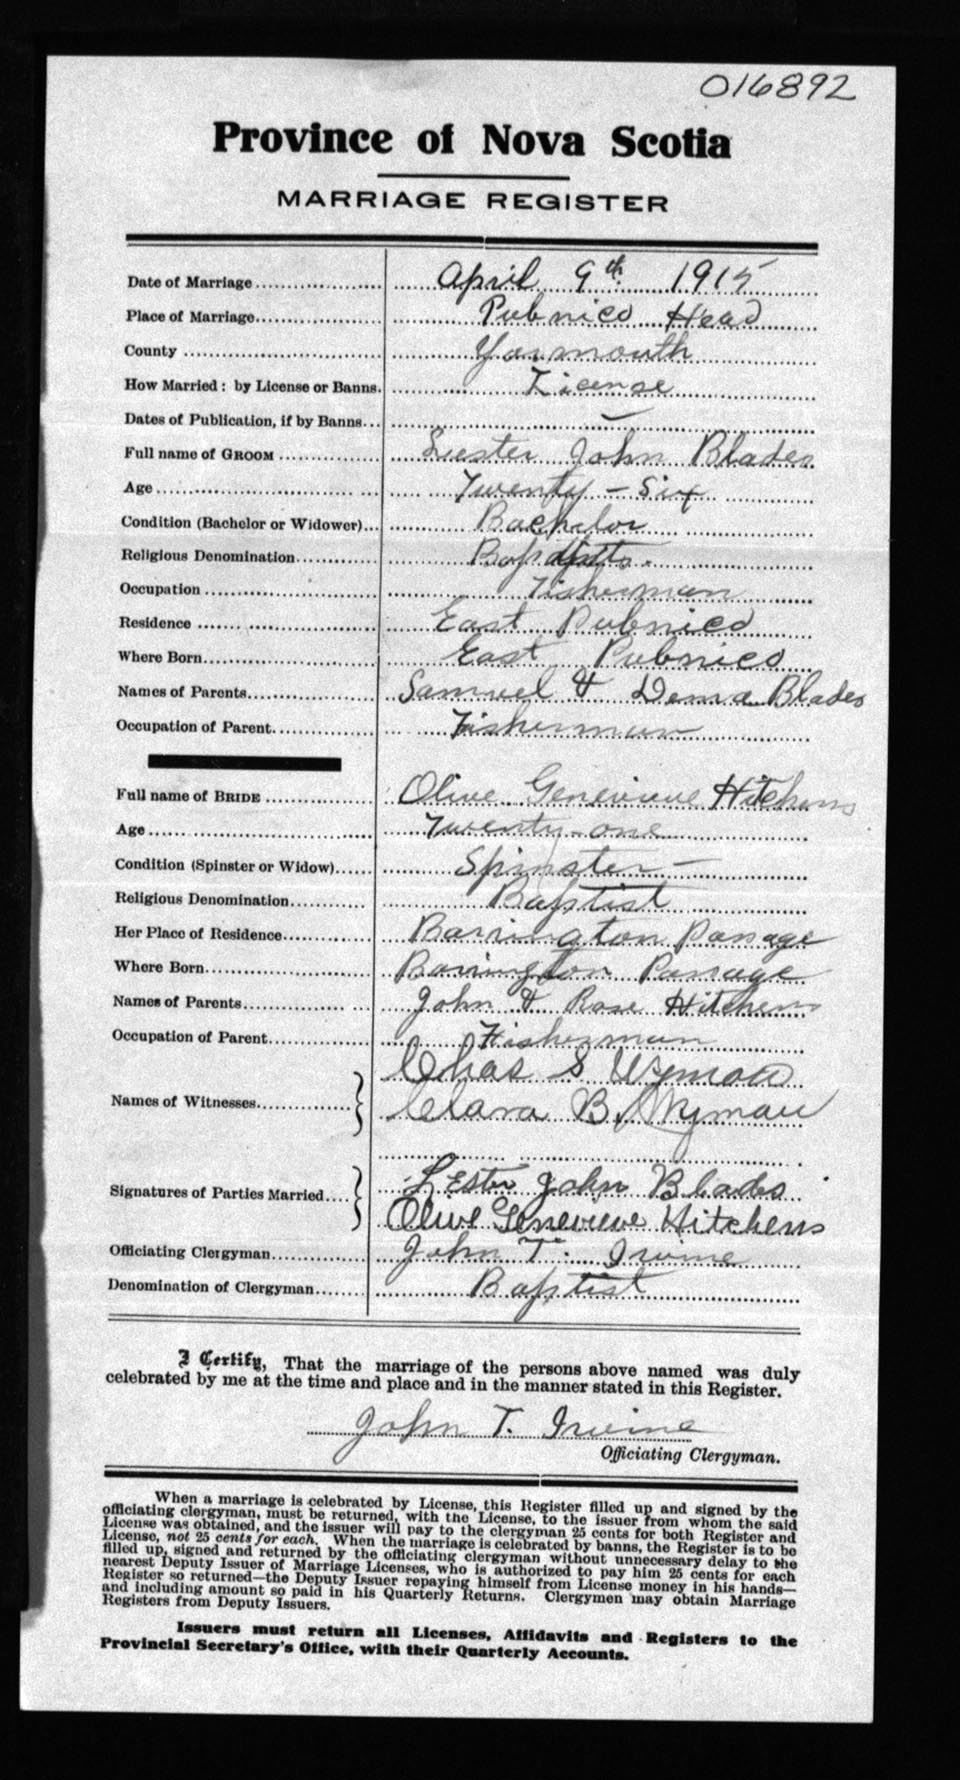 016892
Province of Nova Scotia
MARRIAGE REGISTER
Date of Marriage April 9th 1915
Place of Marriage Pubnico Head
County Yarmouth
How Married: by License or Banns. License
Dates of Publication, if by Banns... —
Full name of GROOM Lester John Blades
Age Twenty-Six
Condition (Bachelor or Widower)... Bachelor
Religious Denomination
Occupation Fisherman
Residence East Pubnico
Where Born East Pubnico
Names of Parents Samuel & Dema Blades
Occupation of Parent Fisherman
Full name of BRIDE Olive Genevieve Hitchens
Age Twenty-one
Condition (Spinster or Widow) Spinster —
Religious Denomination Baptist
Her Place of Residence Barrington Passage
Where Born Barrington Passage
Names of Parents John & Rose Hitchens
Occupation of Parent Fisherman
Names of Witnesses Chas S Wyman
Clara B. Wyman
Signatures of Parties Married Lester John Blades
Olive Genevieve Hitchens
Officiating Clergyman John T. Irvine
Denomination of Clergyman Baptist
I Certify, That the marriage of the persons above named was duly
celebrated by me at the time and place and in the manner stated in this Register.
John T. Irvine
Officiating Clergyman.
When a marriage is celebrated by License, this Register filled up and signed by the
officiating clergyman, must be returned, with the License, to the issuer from whom the said
License was obtained, and the issuer will pay to the clergyman 25 cents for both Register and
License, not 25 cents for each. When the marriage is celebrated by banns, the Register is to be
filled up, signed and returned by the officiating clergyman without unnecessary delay to the
nearest Deputy Issuer of Marriage Licenses, who is authorized to pay him 25 cents for each
Register so returned—the Deputy Issuer repaying himself from License money in his hands—
and including amount so paid in his Quarterly Returns. Clergymen may obtain Marriage
Registers from Deputy Issuers.
Issuers must return all Licenses, Affidavits and Registers to the
Provincial Secretary's Office, with their Quarterly Accounts.